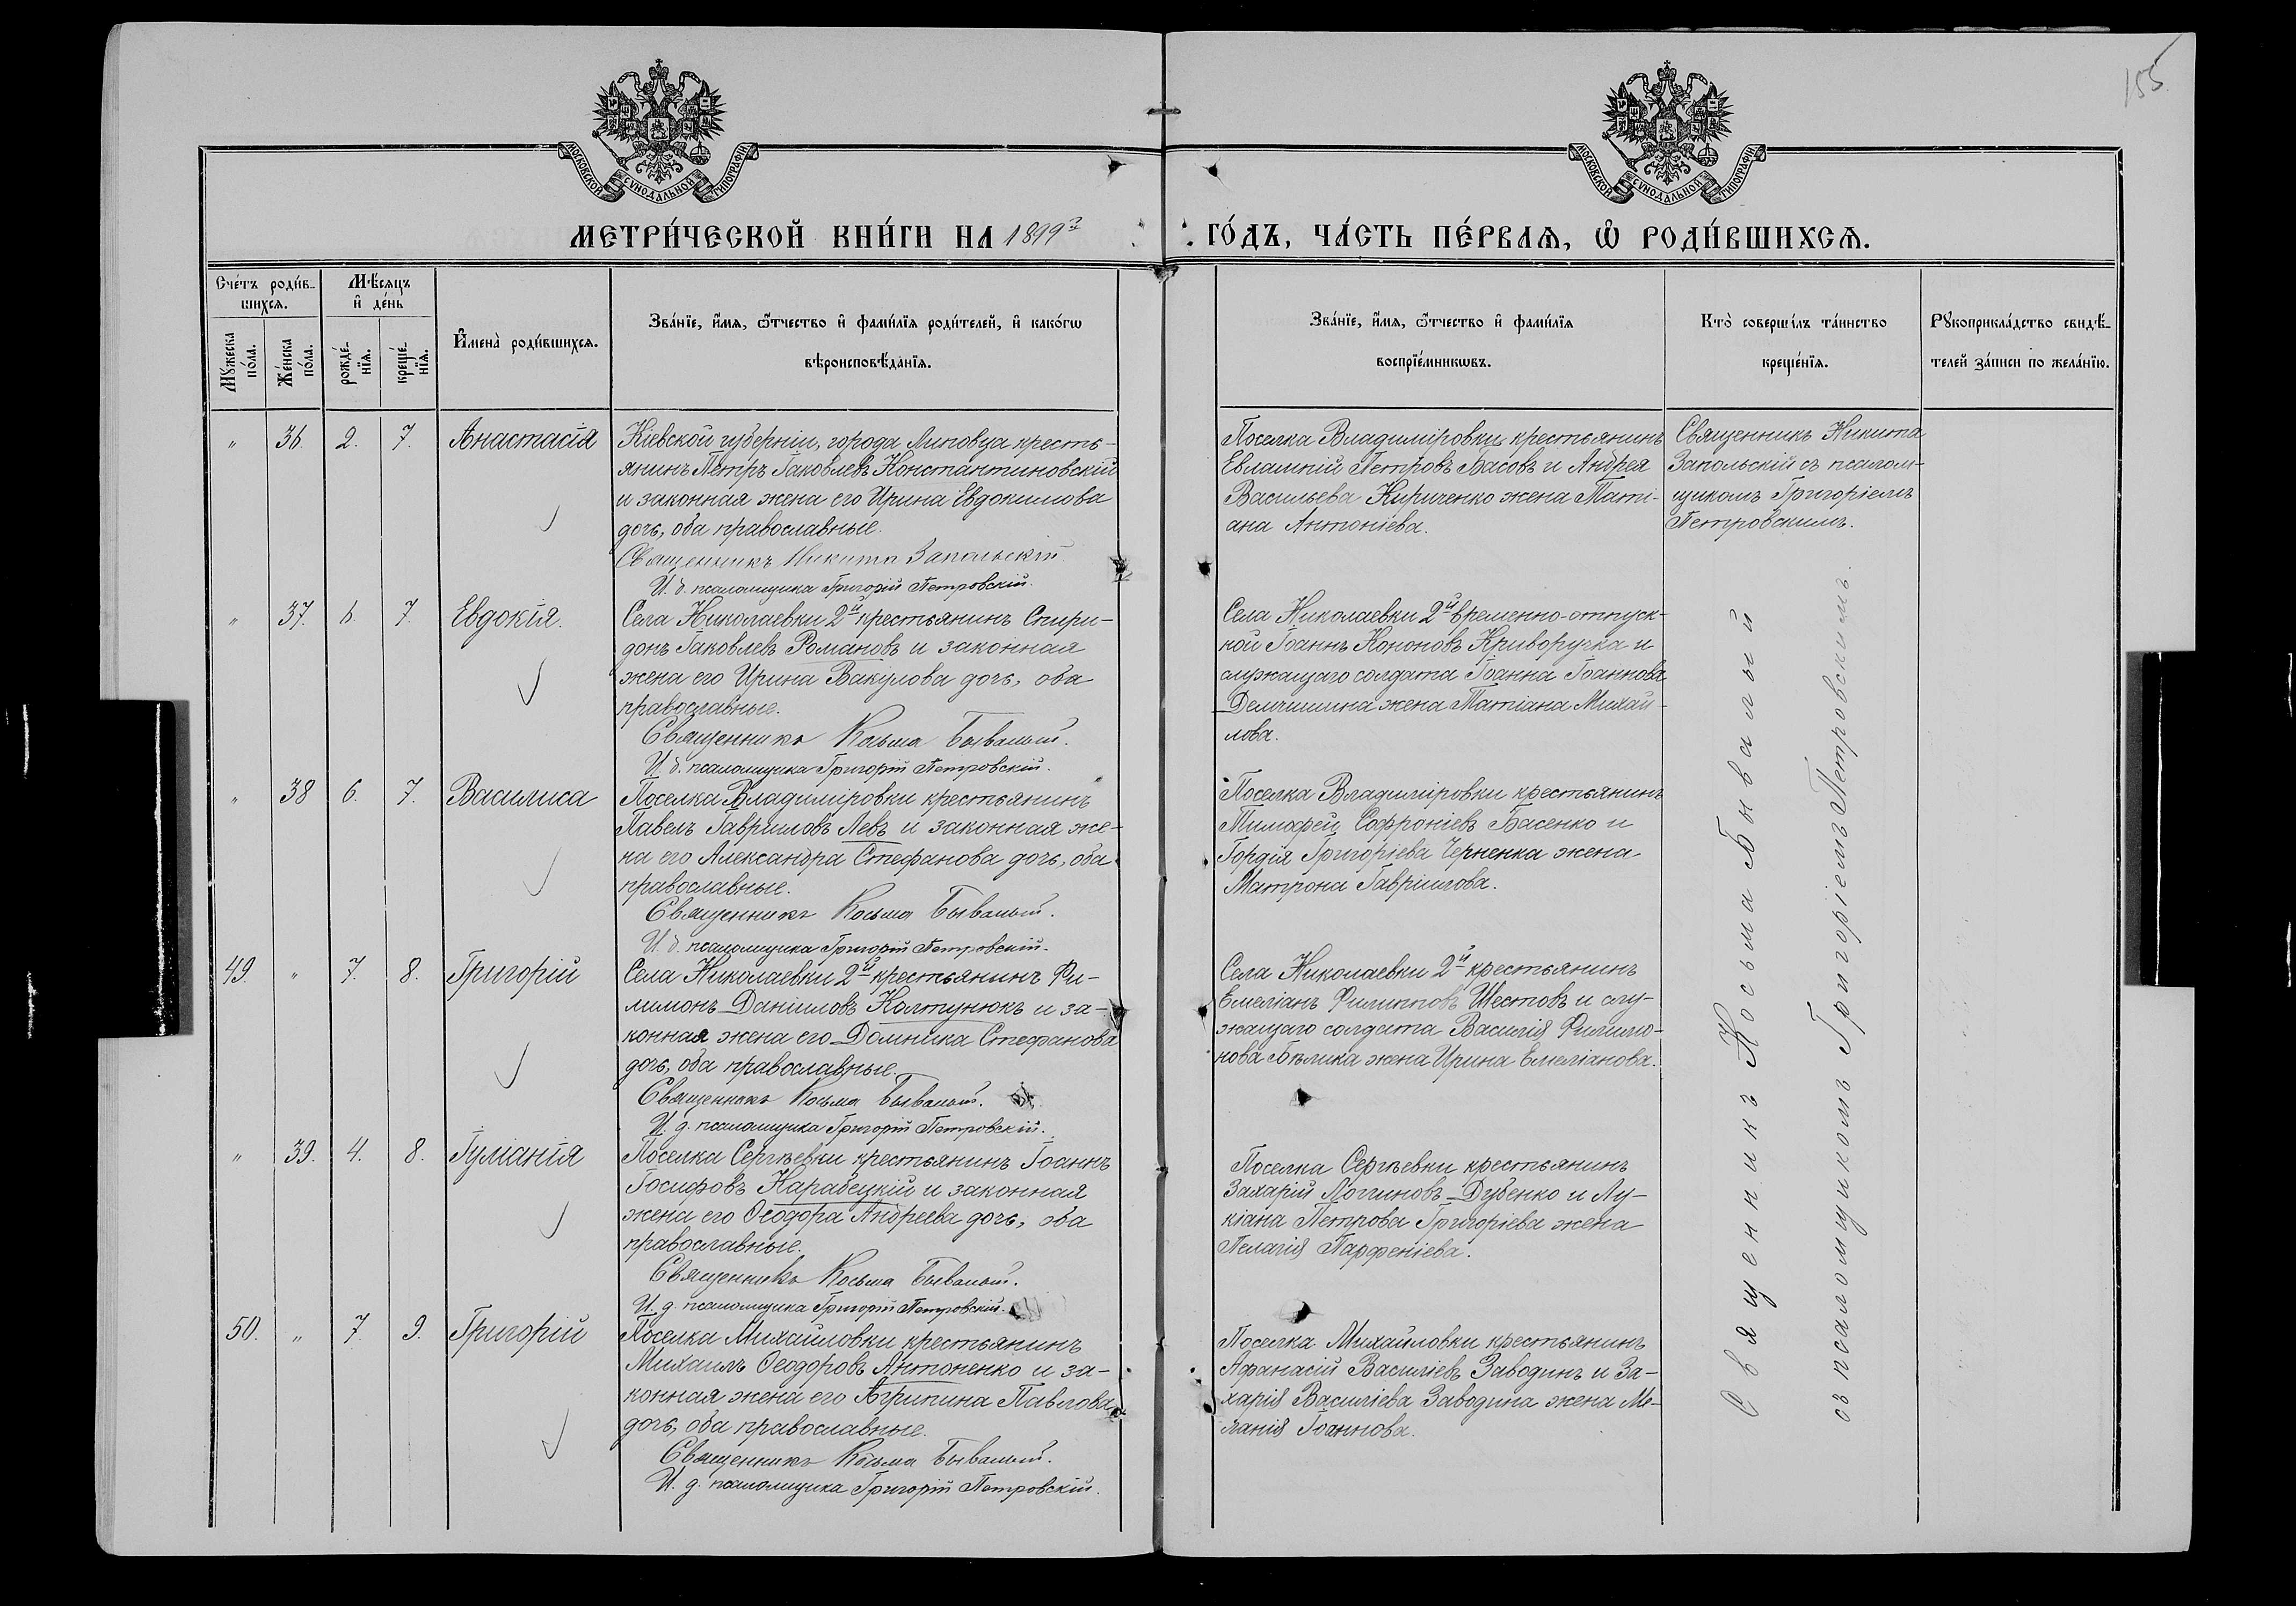 155
МОСКОВСКОЙ СѴНОДАЛЬНОЙ ТИПОГРАФІИ
МОСКОВСКОЙ СѴНОДАЛЬНОЙ ТИПОГРАФІИ
МЕТРИ́ЧЕСКОЙ КНИ́ГИ НА 1899й
ГО́ДЪ, ЧА́СТЬ ПЕ́РВАѦ, Ѡ҆ РОДИ́ВШИХСѦ.
Сче́тъ роди́в-
шихсѧ.
Мꙋ́жеска по́ла.
Же́нска по́ла.
Мѣ́сѧцъ
и҆ де́нь
рожде́-
нїѧ.
креще́-
нїѧ.
И҆мена̀ роди́вшихсѧ.
Зва́нїе, и҆́мѧ, ѻ҆́тчество и҆ фами́лїѧ роди́телей, и҆ како́гѡ
вѣроисповѣ́данїѧ.
Зва́нїе, и҆́мѧ, ѻ҆́тчество и҆ фами́лїѧ
воспрїе́мникѡвъ.
Кто̀ соверши́лъ та́инство
креще́нїѧ.
Рꙋкоприкла́дство свидѣ́-
телей за́писи по жела́нїю.
" 36. 2. 7. Анастасія
Кіевской губерніи, города Липовца кресть-
янинъ Петръ Іаковлевъ Константиновскій
и законная жена его Ирина Евдокимова
дочь, оба православные.
Священникъ Никита Запольскій
И. д. псаломщика Григорій Петровскій.
Поселка Владиміровки крестьянинъ
Евлампій Петровъ Басовъ и Андрея
Васильева Кириченко жена Таті-
ана Антоніева.
Священникъ Никита
Запольскій съ псалом-
щикомъ Григоріемъ
Петровскимъ.
" 37. 6. 7. Евдокія.
Села Николаевки 2й крестьянинъ Спири-
донъ Іаковлевъ Романовъ и законная
жена его Ирина Вакулова дочь, оба
православные.
Священникъ Косьма Бывалый.
И. д. псаломщика Григорій Петровскій.
Села Николаевки 2й временно-отпуск-
ной Іоаннъ Кононовъ Криворучка и
служащаго солдата Іоанна Іоаннова
Демчишина жена Татіана Михай-
лова.
" 38 6. 7. Василиса
Поселка Владиміровки крестьянинъ
Павелъ Гавриловъ Левъ и законная же-
на его Александра Стефанова дочь, оба
православные.
Священникъ Косьма Бывалый.
И. д. псаломщика Григорій Петровскій.
Поселка Владиміровки крестьянинъ
Тимофей Софроніевъ Басенко и
Гордія Григоріева Черненка жена
Матрона Гавріилова.
49. " 7. 8. Григорій
Села Николаевки 2й крестьянинъ Фи-
лимонъ Даніиловъ Колтунюкъ и за-
конная жена его Домника Стефанова
дочь, оба православные.
Священникъ Косьма Бывалый.
И. д. псаломщика Григорій Петровскій.
Села Николаевки 2й крестьянинъ
Емеліанъ Филипповъ Шестовъ и слу-
жащаго солдата Василія Филимо-
нова Бѣлика жена Ирина Емеліанова.
" 39. 4. 8. Іуліанія
Поселка Сергѣевки крестьянинъ Іоаннъ
Іосифовъ Карабецкій и законная
жена его Ѳеодора Андреева дочь, оба
православные.
Священникъ Косьма Бывалый.
И. д. псаломщика Григорій Петровскій.
Поселка Сергѣевки крестьянинъ
Захарій Логгиновъ Дубенко и Лу-
кіана Петрова Григоріева жена
Пелагія Парѳеніева.
50. " 7. 9. Григорій
Поселка Михайловки крестьянинъ
Михаилъ Ѳеодоровъ Антоненко и за-
конная жена его Агрипина Павлова
дочь, оба православные.
Священникъ Косьма Бывалый.
И. д. псаломщика Григорій Петровскій.
Поселка Михайловки крестьянинъ
Афанасій Василіевъ Заводинъ и За-
харія Василіева Заводина жена Ме-
ланія Іоаннова.
Священникъ Косьма Бывалый
съ псаломщикомъ Григоріемъ Петровскимъ.